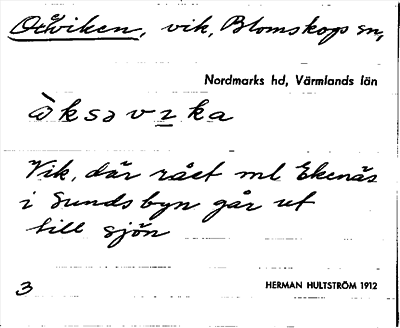 vik, Blomskogs sn,
Nordmarks hd, Värmlands län
Vik, där rået ml Ekenäs
i Sundsbyn går ut
till sjön
3 HERMAN HULTSTRÖM 1912